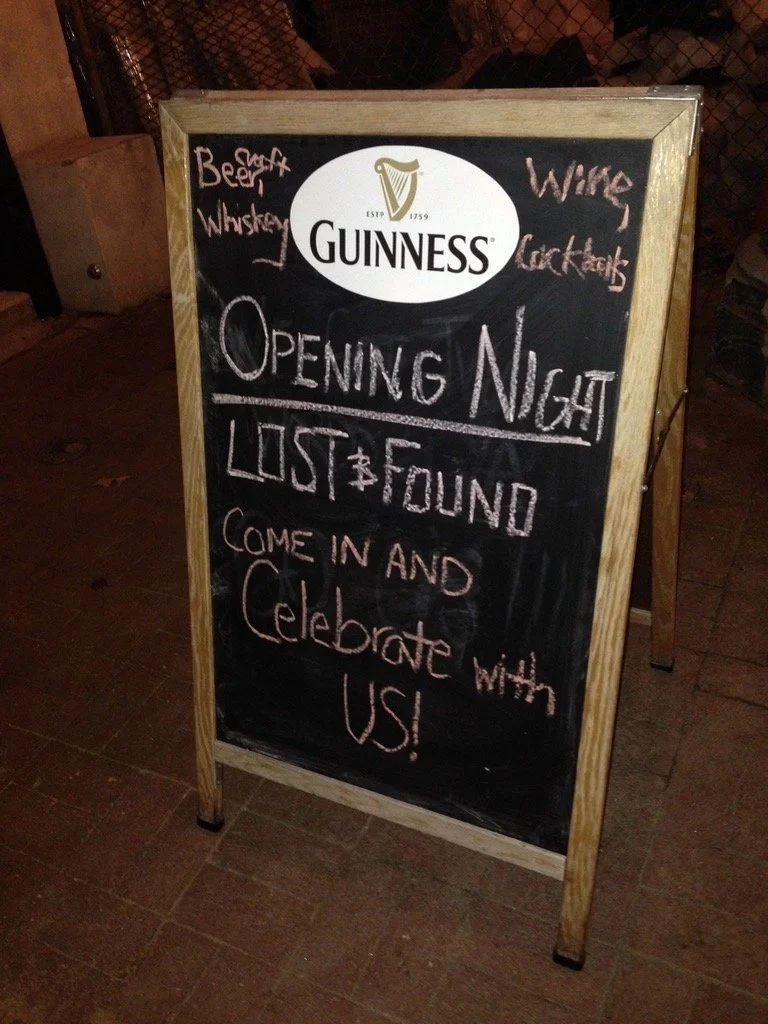 Craft
Beer,
Whiskey
ESTD 1759
GUINNESS
Wine,
Cocktails
OPENING NIGHT
LOST & FOUND
COME IN AND
Celebrate with
US!